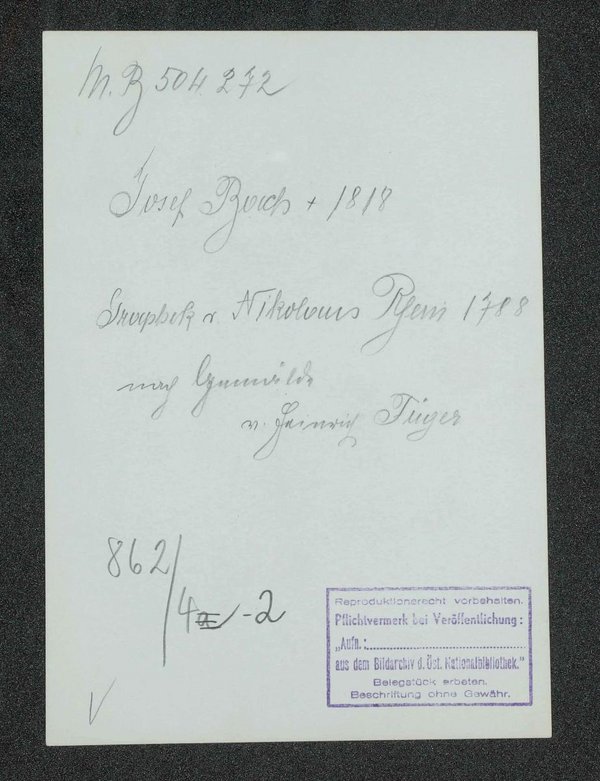 M. B 504 272
Josef Barth + 1818
Graphik v. Nikolaus Rhein 1788
nach Gemälde
v. Heinrich Füger
862/4a-2
V
Reproduktionsrecht vorbehalten.
Pflichtvermerk bei Veröffentlichung:
„Aufn.:
aus dem Bildarchiv d. Öst. Nationalbibliothek."
Belegstück erbeten.
Beschriftung ohne Gewähr.